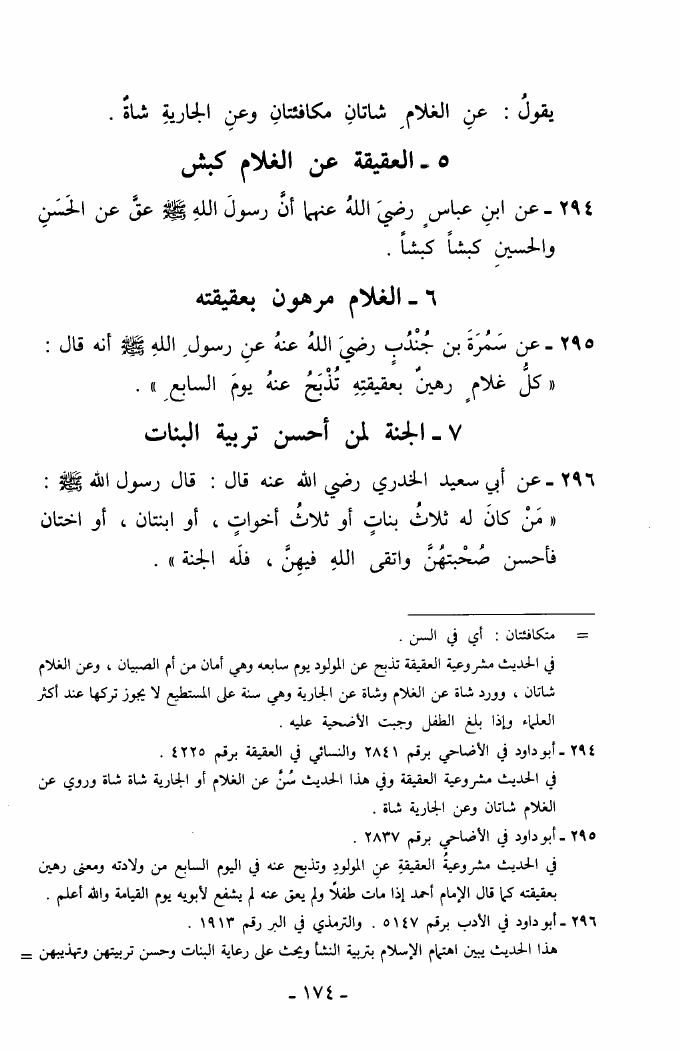 يقولُ : عنِ الغلامِ شاتانِ مكافئتانِ وعنِ الجاريةِ شاةٌ .
٥ ـ العقيقة عن الغلام كبش
٢٩٤ ـ عن ابنِ عباسٍ رضيَ اللهُ عنهما أنَّ رسولَ اللهِ ﷺ عقَّ عن الحَسَنِ
والحسينِ كبشاً كبشاً .
٦ ـ الغلام مرهون بعقيقته
٢٩٥ ـ عن سَمُرَةَ بن جُنْدُبٍ رضيَ اللهُ عنهُ عنِ رسولِ اللهِ ﷺ أنه قال :
« كلُّ غلامٍ رهينٌ بعقيقتِهِ تُذْبَحُ عنهُ يومَ السابعِ » .
٧ ـ الجنة لمن أحسن تربية البنات
٢٩٦ ـ عن أبي سعيد الخدري رضي الله عنه قال : قال رسول الله ﷺ :
« مَنْ كانَ له ثلاثُ بناتٍ أو ثلاثُ أخواتٍ ، أو ابنتان ، أو اختان
فأحسن صُحْبتهُنَّ واتقى اللهِ فيهِنَّ ، فلَه الجنة » .
= متكافئتان : أي في السن .
في الحديث مشروعية العقيقة تذبح عن المولود يوم سابعه وهي أمان من أم الصبيان ، وعن الغلام
شاتان ، وورد شاة عن الغلام وشاة عن الجارية وهي سنة على المستطيع لا يجوز تركها عند أكثر
العلماء وإذا بلغ الطفل وجبت الأضحية عليه .
٢٩٤ ـ أبو داود في الأضاحي برقم ٢٨٤١ والنسائي في العقيقة برقم ٤٢٢٥ .
في الحديث مشروعية العقيقة وفي هذا الحديث سُنَّ عن الغلام أو الجارية شاة شاة وروي عن
الغلام شاتان وعن الجارية شاة .
٢٩٥ ـ أبو داود في الأضاحي برقم ٢٨٣٧ .
في الحديث مشروعيةُ العقيقةِ عنِ المولودِ وتذبح عنه في اليوم السابع من ولادته ومعنى رهين
بعقيقته كما قال الإمام أحمد إذا مات طفلًا ولم يعق عنه لم يشفع لأبويه يوم القيامة والله أعلم .
٢٩٦ ـ أبو داود في الأدب برقم ٥١٤٧ . والترمذي في البر رقم ١٩١٣ .
هذا الحديث يبين اهتمام الإسلام بتربية النشأ ويحث على رعاية البنات وحسن تربيتهن وتهذيبهن =
ـ ١٧٤ ـ